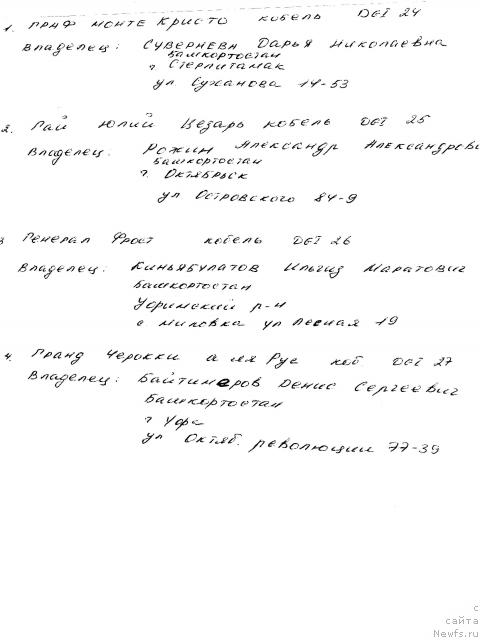 1. Граф Монте Кристо кобель DEI 24
Владелец: Сувернева Дарья Николаевна
Башкортостан
г. Стерлитамак
ул Сужанова 14-53
2. Гай Юлий Цезарь кобель DEI 25
Владелец: Рожин Александр Александрови
Башкортостан
г. Октябрьск
ул Островского 84-9
3 Генерал Фрост кобель DEI 26
Владелец: Киньябулатов Ильгиз Маратович
Башкортостан
Уфимский р-н
с Миловка ул Лесная 19
4. Гранд Черокки а ля Рус коб DEI 27
Владелец: Байтимеров Денис Сергеевич
Башкортостан
г Уфа
ул Октяб. революции 77-39
с
сайта
Newfs.ru